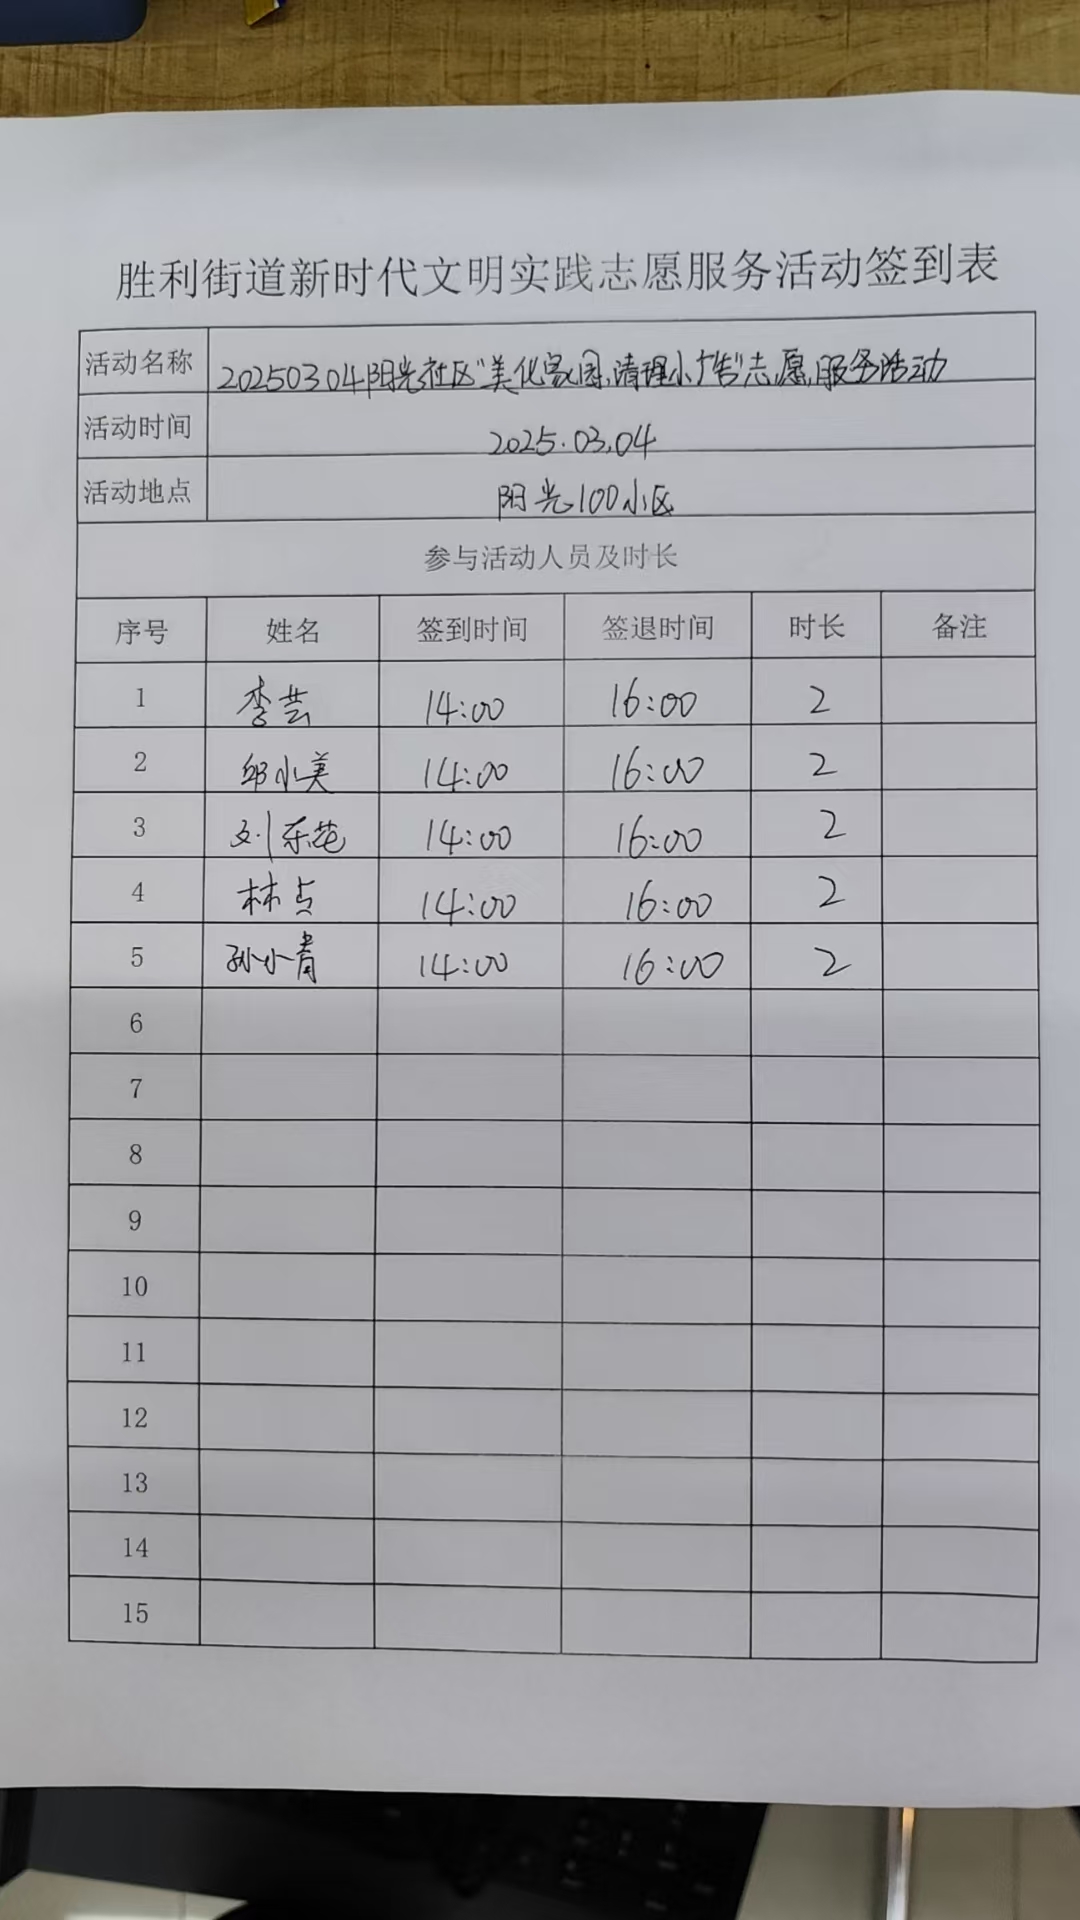 胜利街道新时代文明实践志愿服务活动签到表
活动名称 20250304阳光社区"美化家园,清理小广告"志愿服务活动
活动时间 2025.03.04
活动地点 阳光100小区
参与活动人员及时长
序号 姓名 签到时间 签退时间 时长 备注
1 李芸 14:00 16:00 2
2 邱小美 14:00 16:00 2
3 刘乐花 14:00 16:00 2
4 林贞 14:00 16:00 2
5 孙小青 14:00 16:00 2
6
7
8
9
10
11
12
13
14
15